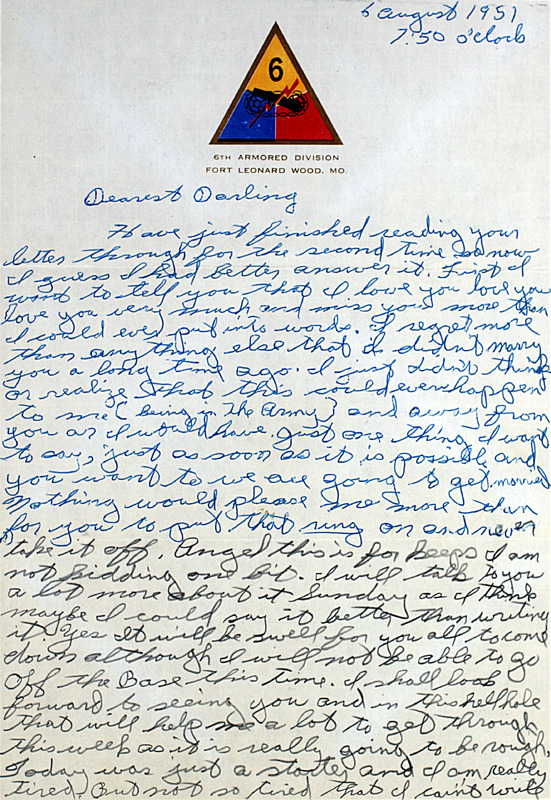 6 August 1951
7:50 o'clock
6
6TH ARMORED DIVISION
FORT LEONARD WOOD, MO.
Dearest Darling
Have just finished reading your
letter through for the second time so now
I guess I had better answer it. First I
want to tell you that I love you love you
love you very much and miss you more than
I could ever put into words. I regret more
than any thing else that I didn't marry
you a long time ago. I just didn't think
or realize that this could ever happen
to me (being in the Army) and away from
you or I would have. Just one thing I want
to say, just as soon as it is possible and
you want to we are going to get married
Nothing would please me more than
for you to put that ring on and never
take it off. Angel this is for keeps I am
not kidding one bit. I will talk to you
a lot more about it Sunday as I think
maybe I could say it better than writing
it. Yes it will be swell for you all to come
down although I will not be able to go
off the Base this time. I shall look
forward to seeing you and in this hellhole
that will help me a lot to get through
this week as it is really going to be rough.
Today was just a starter and I am really
tired. But not so tired that I can't write